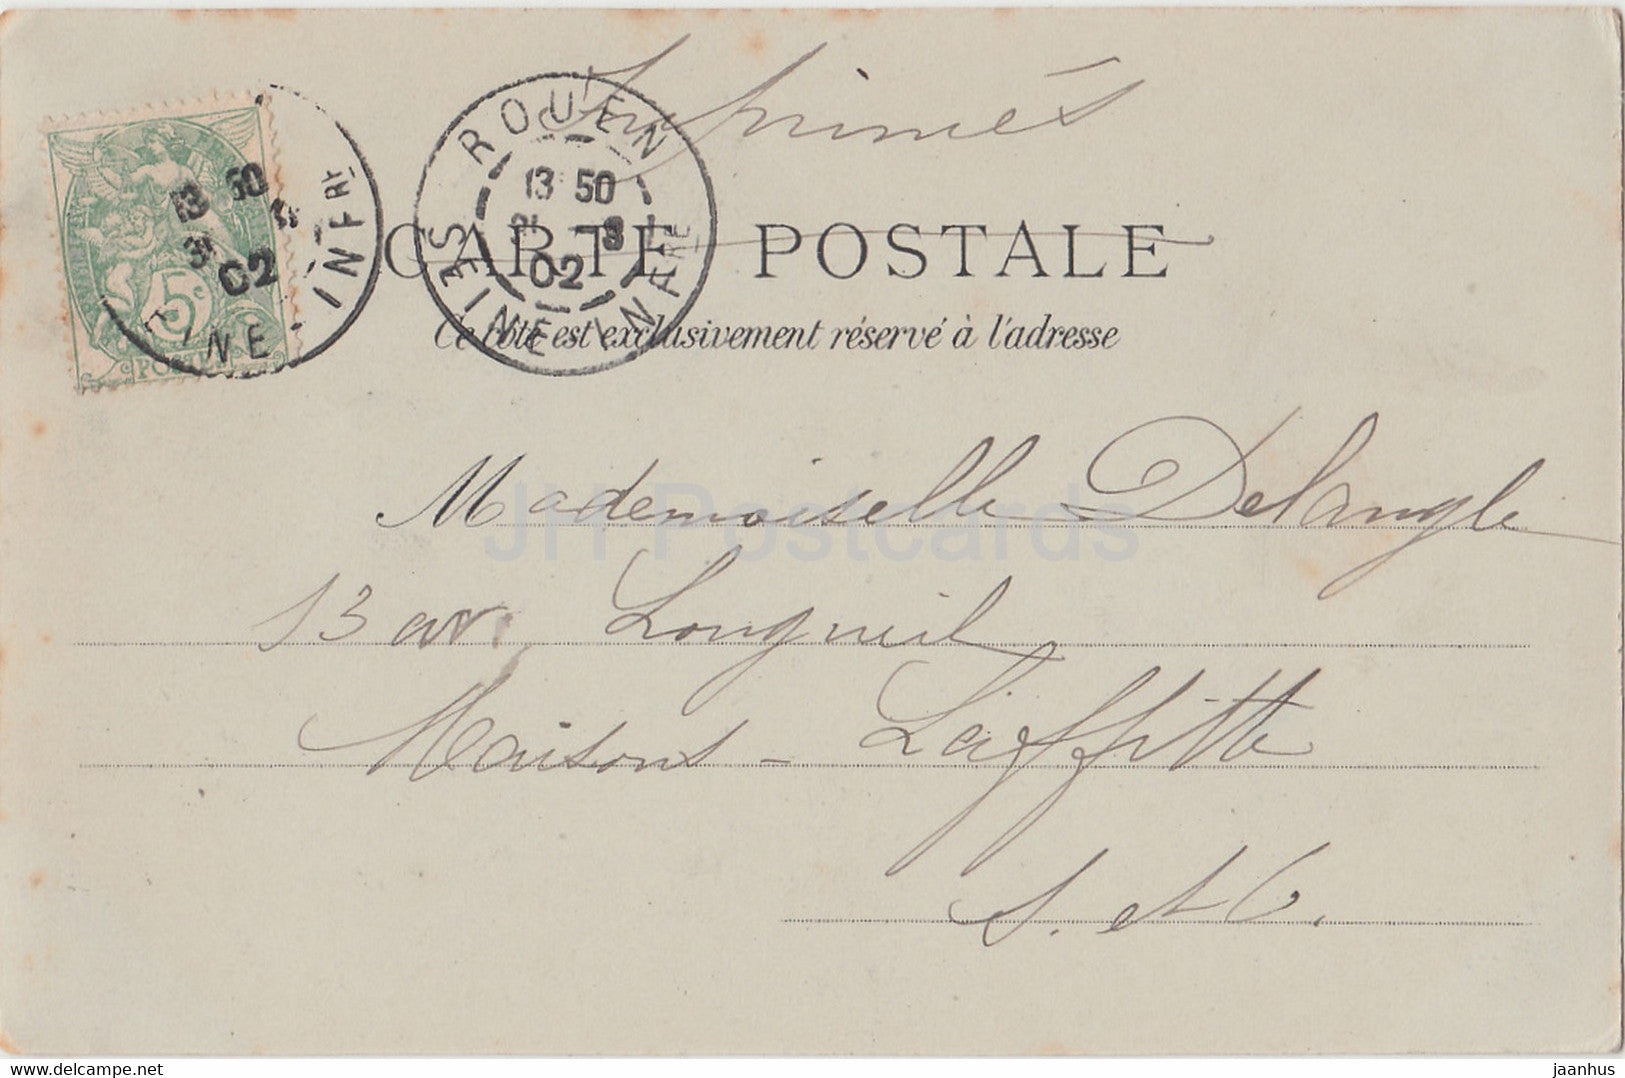 Imprimés
ROUEN
13 50
31 -8
02
SEINE INFRE
13 50
31 8
02
INE - INFRE
5c
CARTE POSTALE
Ce côté est exclusivement réservé à l'adresse
Mademoiselle Delangle
13 av. Longueil
Maisons - Laffitte
S. et O.
JH Postcards
jaanhus